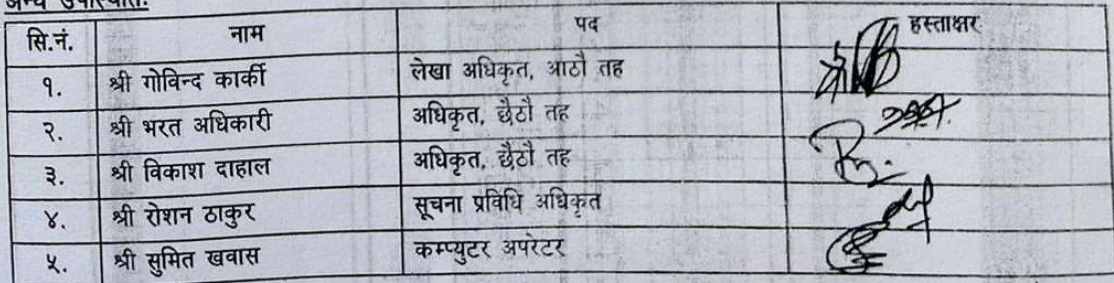 अन्य उपस्थितिः
सि.नं. नाम पद हस्ताक्षर
१. श्री गोविन्द कार्की लेखा अधिकृत, आठौ तह
२. श्री भरत अधिकारी अधिकृत, छैठौ तह
३. श्री विकाश दाहाल अधिकृत, छैठौ तह
४. श्री रोशन ठाकुर सूचना प्रविधि अधिकृत
५. श्री सुमित खवास कम्प्युटर अपरेटर